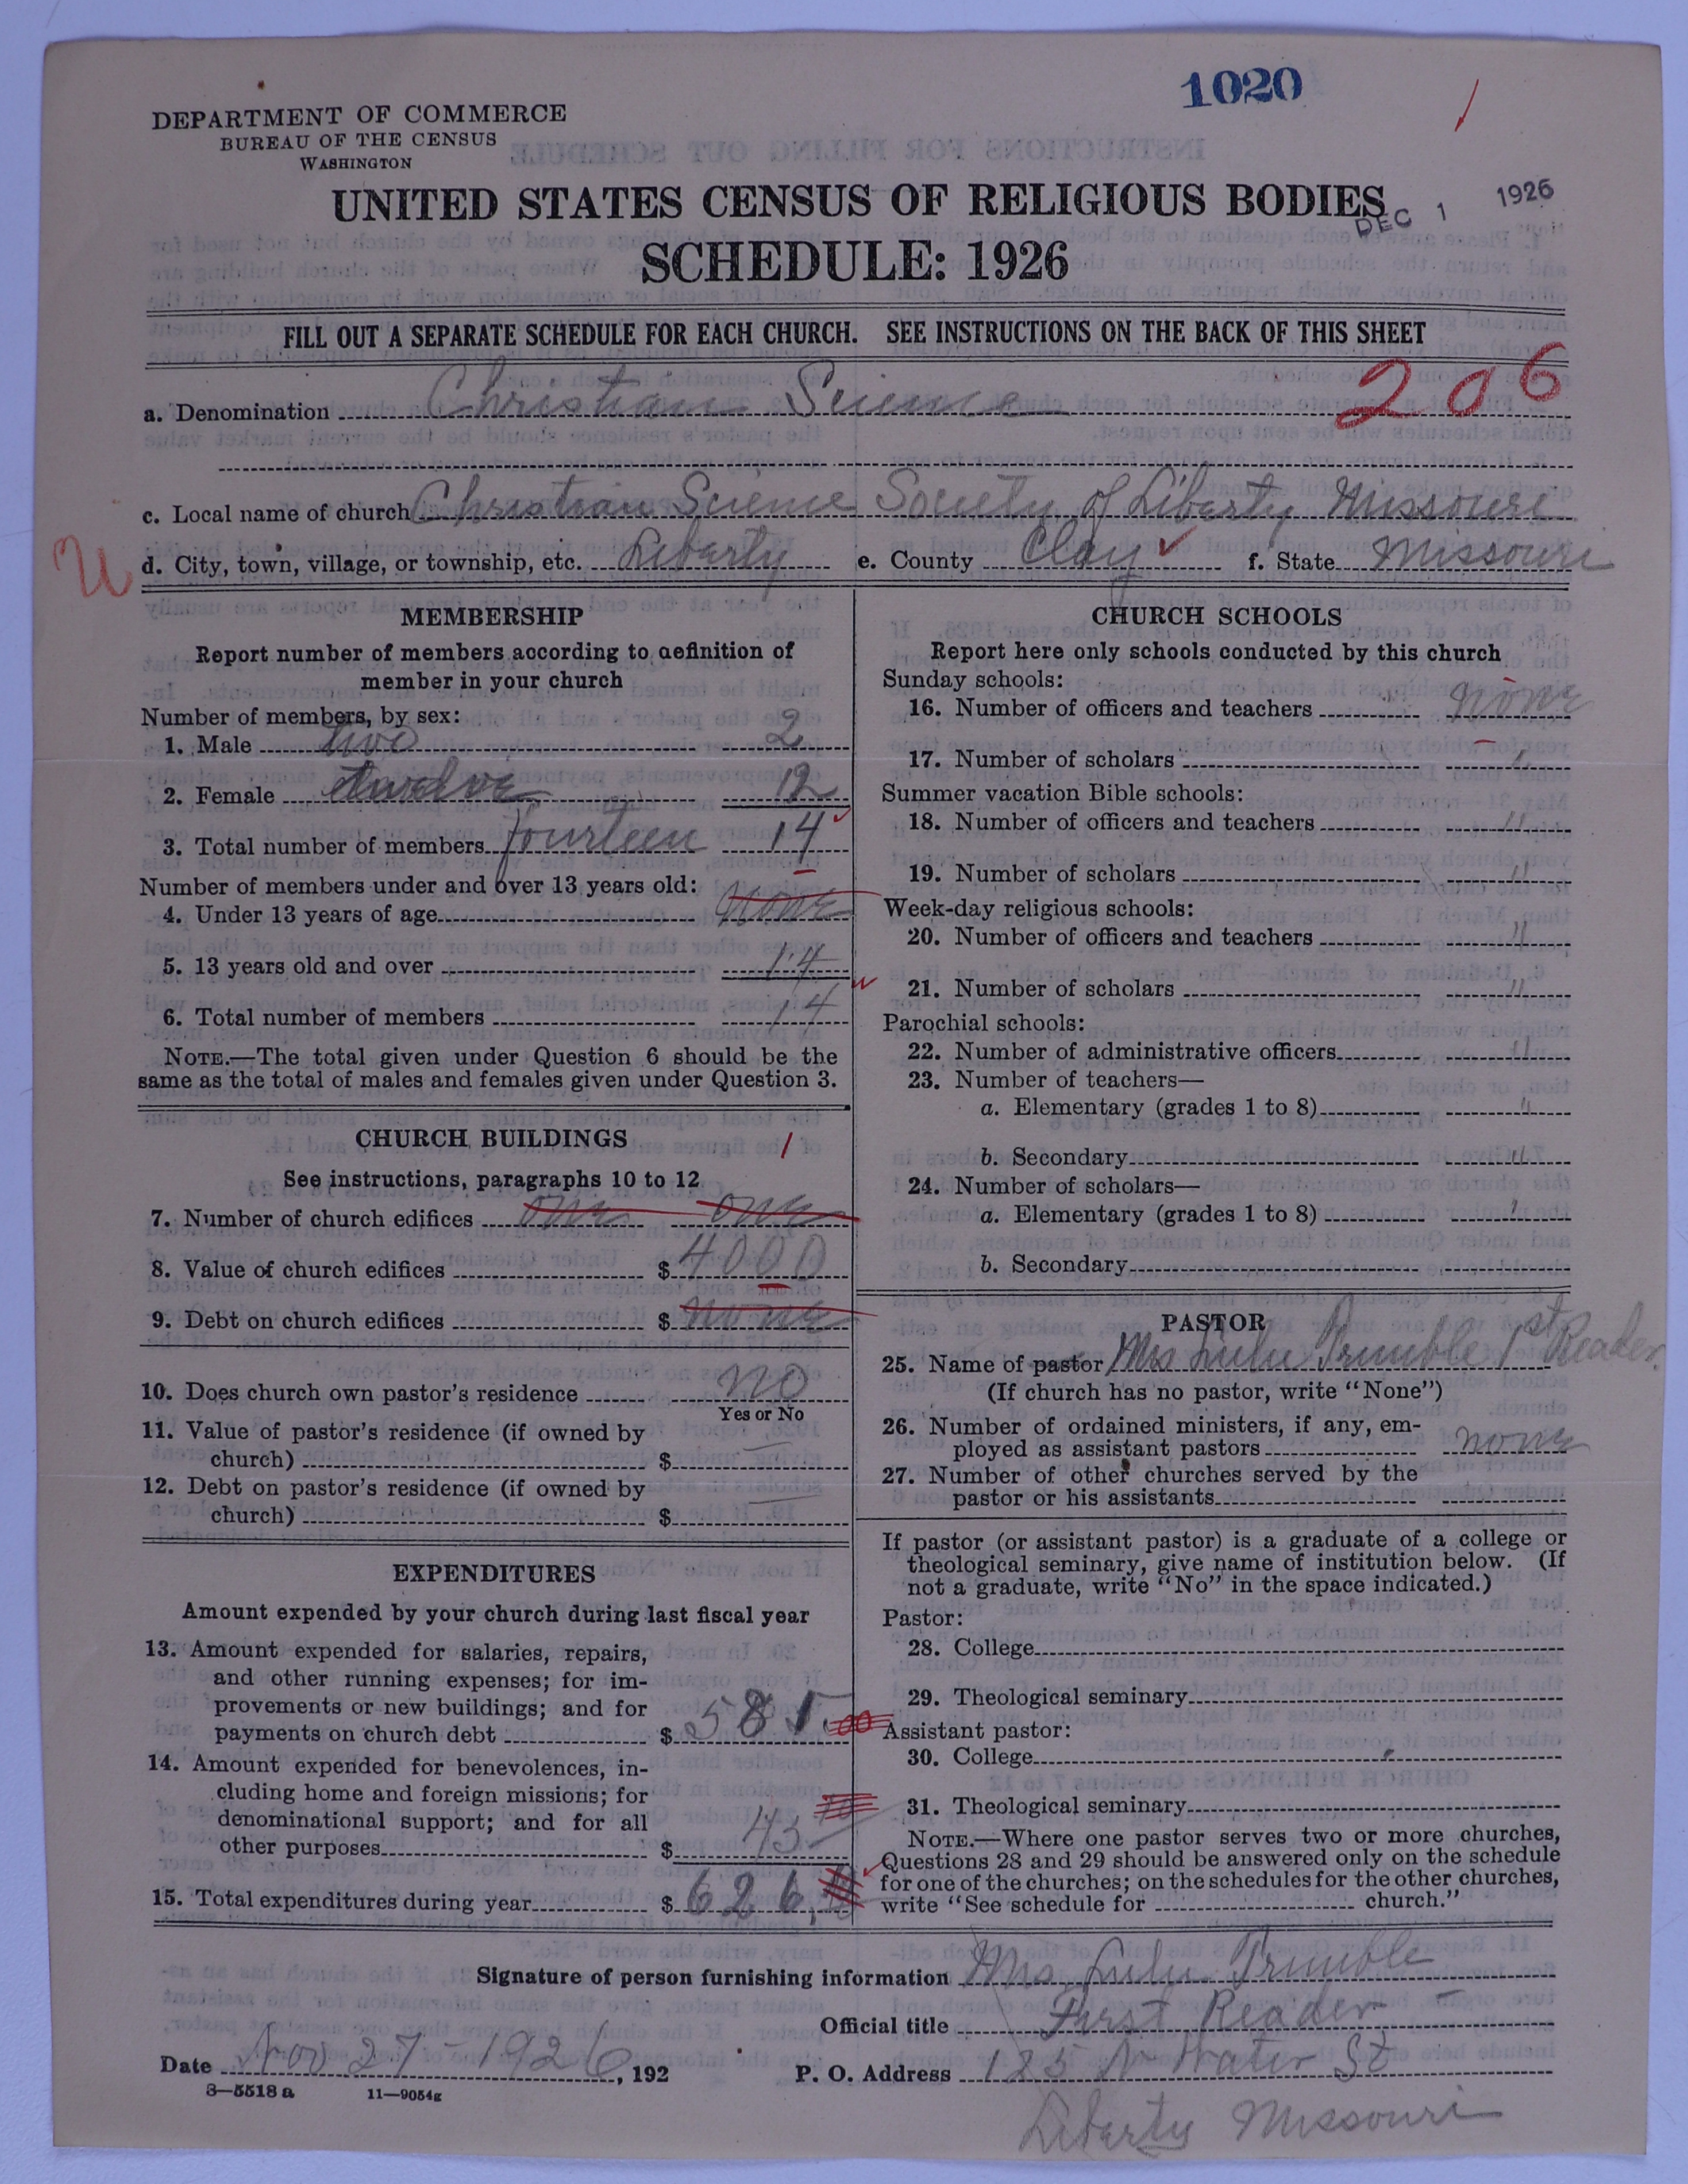 1020
DEPARTMENT OF COMMERCE
BUREAU OF THE CENSUS
WASHINGTON
UNITED STATES CENSUS OF RELIGIOUS BODIES
DEC 1 1926
SCHEDULE: 1926
FILL OUT A SEPARATE SCHEDULE FOR EACH CHURCH. SEE INSTRUCTIONS ON THE BACK OF THIS SHEET
206
a. Denomination Christian Science
c. Local name of church Christian Science Society of Liberty Missouri
U
d. City, town, village, or township, etc. Liberty e. County Clay f. State Missouri
MEMBERSHIP
Report number of members according to definition of
member in your church
Number of members, by sex:
1. Male two 2
2. Female twelve 12
3. Total number of members fourteen 14
Number of members under and over 13 years old:
4. Under 13 years of age none
5. 13 years old and over 14
6. Total number of members 14
NOTE.—The total given under Question 6 should be the
same as the total of males and females given under Question 3.
CHURCH BUILDINGS 1
See instructions, paragraphs 10 to 12
7. Number of church edifices one one
8. Value of church edifices $ 4000
9. Debt on church edifices $ none
10. Does church own pastor's residence no
Yes or No
11. Value of pastor's residence (if owned by
church) $
12. Debt on pastor's residence (if owned by
church) $
EXPENDITURES
Amount expended by your church during last fiscal year
13. Amount expended for salaries, repairs,
and other running expenses; for im-
provements or new buildings; and for
payments on church debt $ 581.00
14. Amount expended for benevolences, in-
cluding home and foreign missions; for
denominational support; and for all
other purposes $ 45
15. Total expenditures during year $ 626.
CHURCH SCHOOLS
Report here only schools conducted by this church
Sunday schools:
16. Number of officers and teachers none
17. Number of scholars "
Summer vacation Bible schools:
18. Number of officers and teachers "
19. Number of scholars "
Week-day religious schools:
20. Number of officers and teachers "
21. Number of scholars "
Parochial schools:
22. Number of administrative officers "
23. Number of teachers—
a. Elementary (grades 1 to 8) "
b. Secondary "
24. Number of scholars—
a. Elementary (grades 1 to 8) "
b. Secondary
PASTOR
25. Name of pastor Mrs Lulu Trimble 1st Reader
(If church has no pastor, write "None")
26. Number of ordained ministers, if any, em-
ployed as assistant pastors none
27. Number of other churches served by the
pastor or his assistants
If pastor (or assistant pastor) is a graduate of a college or
theological seminary, give name of institution below. (If
not a graduate, write "No" in the space indicated.)
Pastor:
28. College
29. Theological seminary
Assistant pastor:
30. College
31. Theological seminary
NOTE.—Where one pastor serves two or more churches,
Questions 28 and 29 should be answered only on the schedule
for one of the churches; on the schedules for the other churches,
write "See schedule for church."
Signature of person furnishing information Mrs Lulu Trimble
Official title First Reader
Date Nov 27-1926, 192 P. O. Address 185 N Water St
3—5518 a 11—9054g
Liberty Missouri